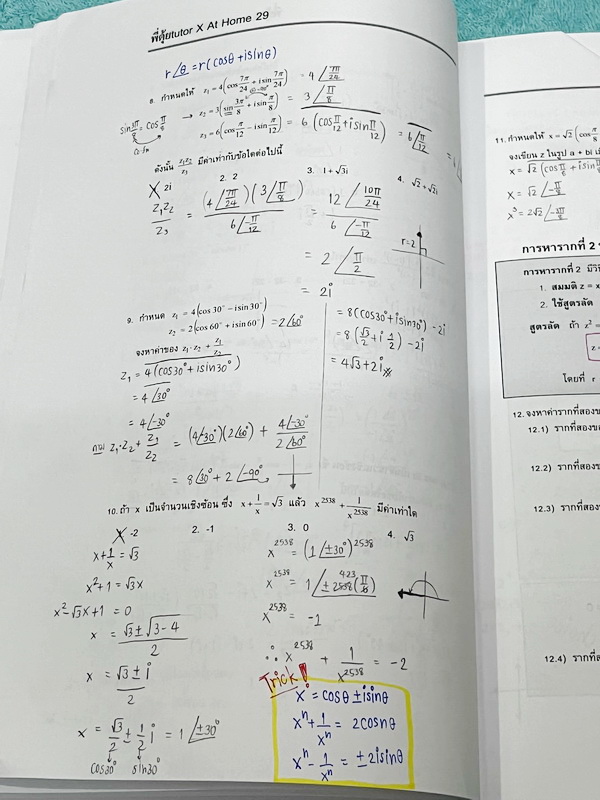 พี่ตุ้ยtutor X At Home 29
r∠θ = r(cosθ+isinθ)
8. กำหนดให้ z₁ = 4(cos 7π/24 + isin 7π/24) = 4∠7π/24
sin 3π/8 = cos π/8 → z₂ = 3(sin 3π/8 + isin π/8) = 3∠π/8
co-fn z₃ = 6(cos π/12 − isin π/12) = 6(cos π/12 + isin π/12) = 6∠π/12
ดังนั้น z₁z₂/z₃ มีค่าเท่ากับข้อใดต่อไปนี้
X 2i 2. 2 3. 1+√3i 4. √2+√2i
z₁z₂/z₃ = (4∠7π/24)(3∠π/8) / 6∠-π/12 = 12∠10π/24 / 6∠-π/12
r=2
= 2∠π/2
= 2i
9. กำหนด z₁ = 4(cos 30° − isin 30°)
z₂ = 2(cos 60° + isin 60°) = 2∠60°
จงหาค่าของ z₁·z₂ + z₁/z₂
z₁ = 4(cos30°+isin30°)
= 4∠30°
= 4∠-30°
ถาม z₁·z₂ + z₁/z₂ = (4∠-30°)(2∠60°) + 4∠-30°/2∠60°
= 8∠30° + 2∠-90°
= 8(cos30°+isin30°) − 2i
= 8(√3/2 + i 1/2) − 2i
= 4√3+2i
10. ถ้า x เป็นจำนวนเชิงซ้อน ซึ่ง x + 1/x = √3 แล้ว x²⁵³⁸ + 1/x²⁵³⁸ มีค่าเท่าใด
X -2 2. -1 3. 0 4. √3
x+1/x = √3
x²+1 = √3x
x²−√3x+1 = 0
x = √3±√3−4 / 2
x = √3±i / 2
x = √3/2 ± 1/2 i = 1∠±30°
cos30° sin30°
x²⁵³⁸ = (1∠±30°)²⁵³⁸
x²⁵³⁸ = 1∠±2538(π/6)
423
x²⁵³⁸ = −1
∴ x²⁵³⁸ + 1/x²⁵³⁸ = −2
Trick!
x° = cosθ±isinθ
xⁿ+1/xⁿ = 2cosnθ
xⁿ−1/xⁿ = ±2isinθ
11. กำหนดให้ x = √2(cos π/8
จงเขียน z ในรูป a + bi
x = √2(cos π/8 + isin π/8
x = √2∠-π/8
x³ = 2√2∠-3π/8
การหารากที่ 2
การหารากที่ 2 มีวิ
1. สมมติ z = x
2. ใช้สูตรลัด
สูตรลัด ถ้า z² =
โดยที่ r
12. จงหาค่ารากที่สองข
12.1) รากที่สองข
12.2) รากที่สองข
12.3) รากที่สองข
12.4) รากที่ส